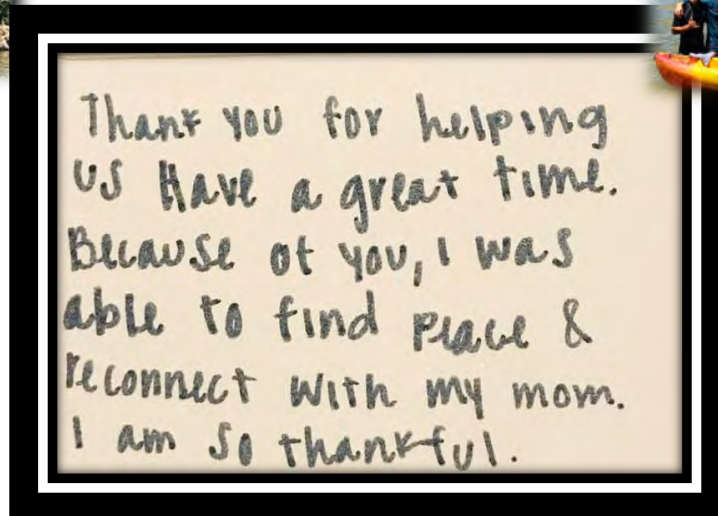 Thank you for helping
us Have a great time.
Because of you, I was
able to find peace &
reconnect with my mom.
I am so thankful.